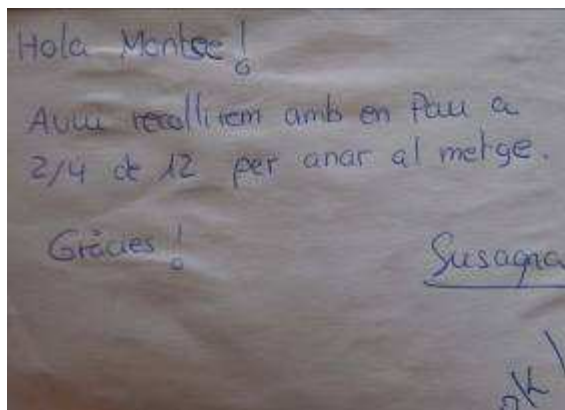 Hola Montse!
Avui recollirem amb en Pau a
2/4 de 12 per anar al metge.
Gràcies!
Susagna
ok